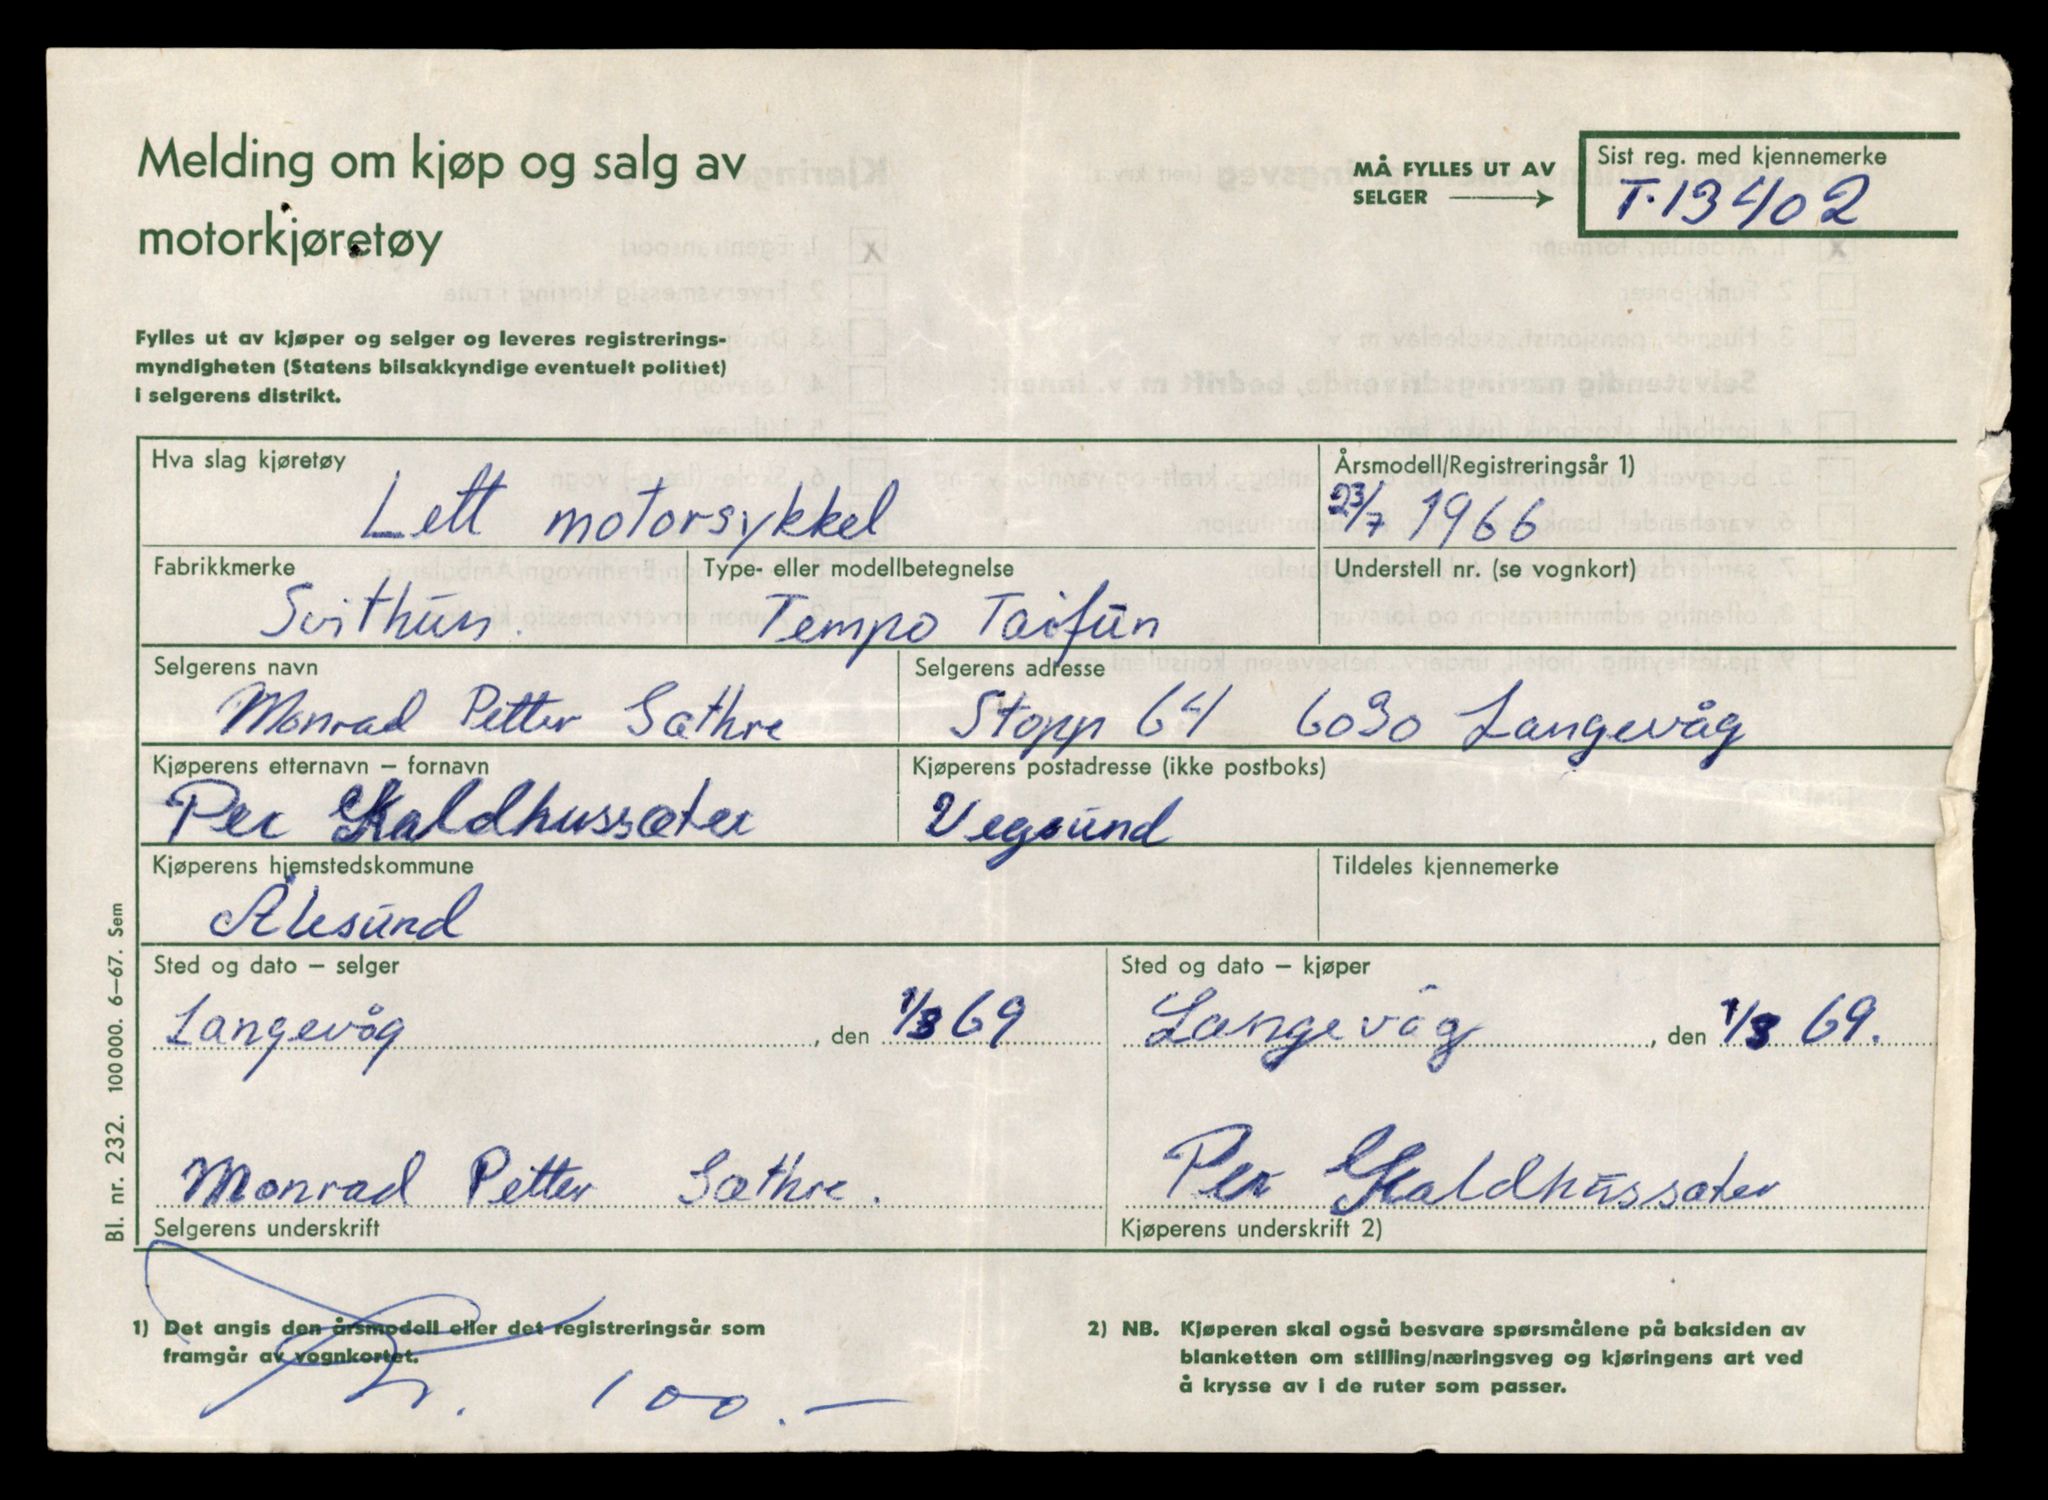 Melding om kjøp og salg av
motorkjøretøy
MÅ FYLLES UT AV
SELGER
Sist reg. med kjennemerke
T-13402
Fylles ut av kjøper og selger og leveres registrerings-
myndigheten (Statens bilsakkyndige eventuelt politiet)
i selgerens distrikt.
Hva slag kjøretøy
Lett motorsykkel
Årsmodell/Registreringsår 1)
23/7 1966
Fabrikkmerke
Svithun.
Type- eller modellbetegnelse
Tempo Taifun
Understell nr. (se vognkort)
Selgerens navn
Monrad Petter Sæthre
Selgerens adresse
Stopp 64 6030 Langevåg
Kjøperens etternavn – fornavn
Per Skaldhussæter
Kjøperens postadresse (ikke postboks)
Vegsund
Kjøperens hjemstedskommune
Ålesund
Tildeles kjennemerke
Sted og dato – selger
Langevåg, den 1/3 69
Sted og dato – kjøper
Langevåg, den 1/3 69.
Monrad Petter Sæthre.
Selgerens underskrift
Per Skaldhussæter
Kjøperens underskrift 2)
1) Det angis den årsmodell eller det registreringsår som
framgår av vognkortet.
2) NB. Kjøperen skal også besvare spørsmålene på baksiden av
blanketten om stilling/næringsveg og kjøringens art ved
å krysse av i de ruter som passer.
100.-
Bl. nr. 232. 100 000. 6–67. Sem